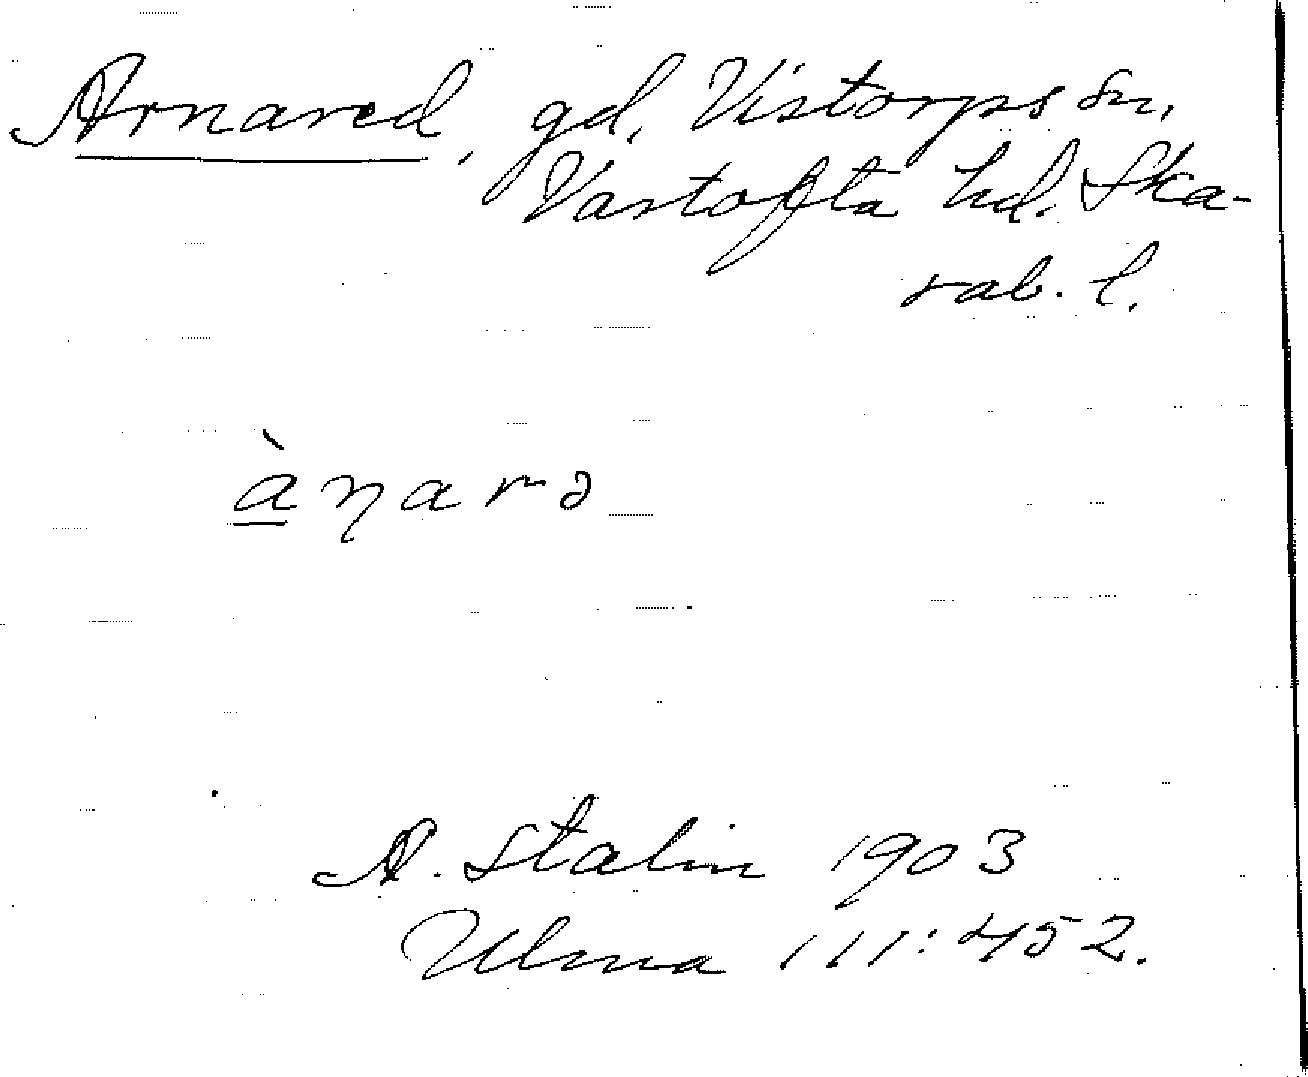 Arnared, gd. Vistorps sn,
Vartofta hd. Ska-
rab. l.
ànarə
A. Stalin 1903
Ulma 111:452.